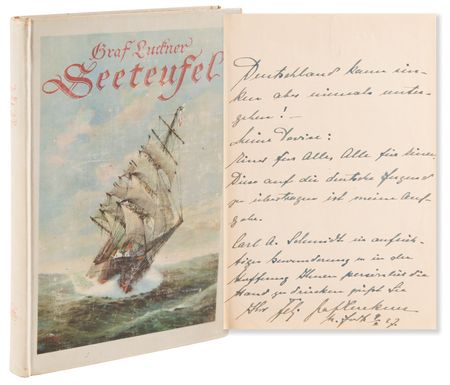 Graf Luckner
Seeteufel
Deutschland kann sin-
ken aber niemals unter-
gehen! –
Meine Devise:
Einer für Alle, Alle für Einen
Dies auf die deutsche Jugend
zu übertragen ist meine Auf-
gabe.
Carl A. Schmidt in aufrich-
tiger Bewunderung u in der
Hoffnung Ihnen persönlich die
Hand zu drücken grüßt Sie
Ihr Felix Graf Luckner